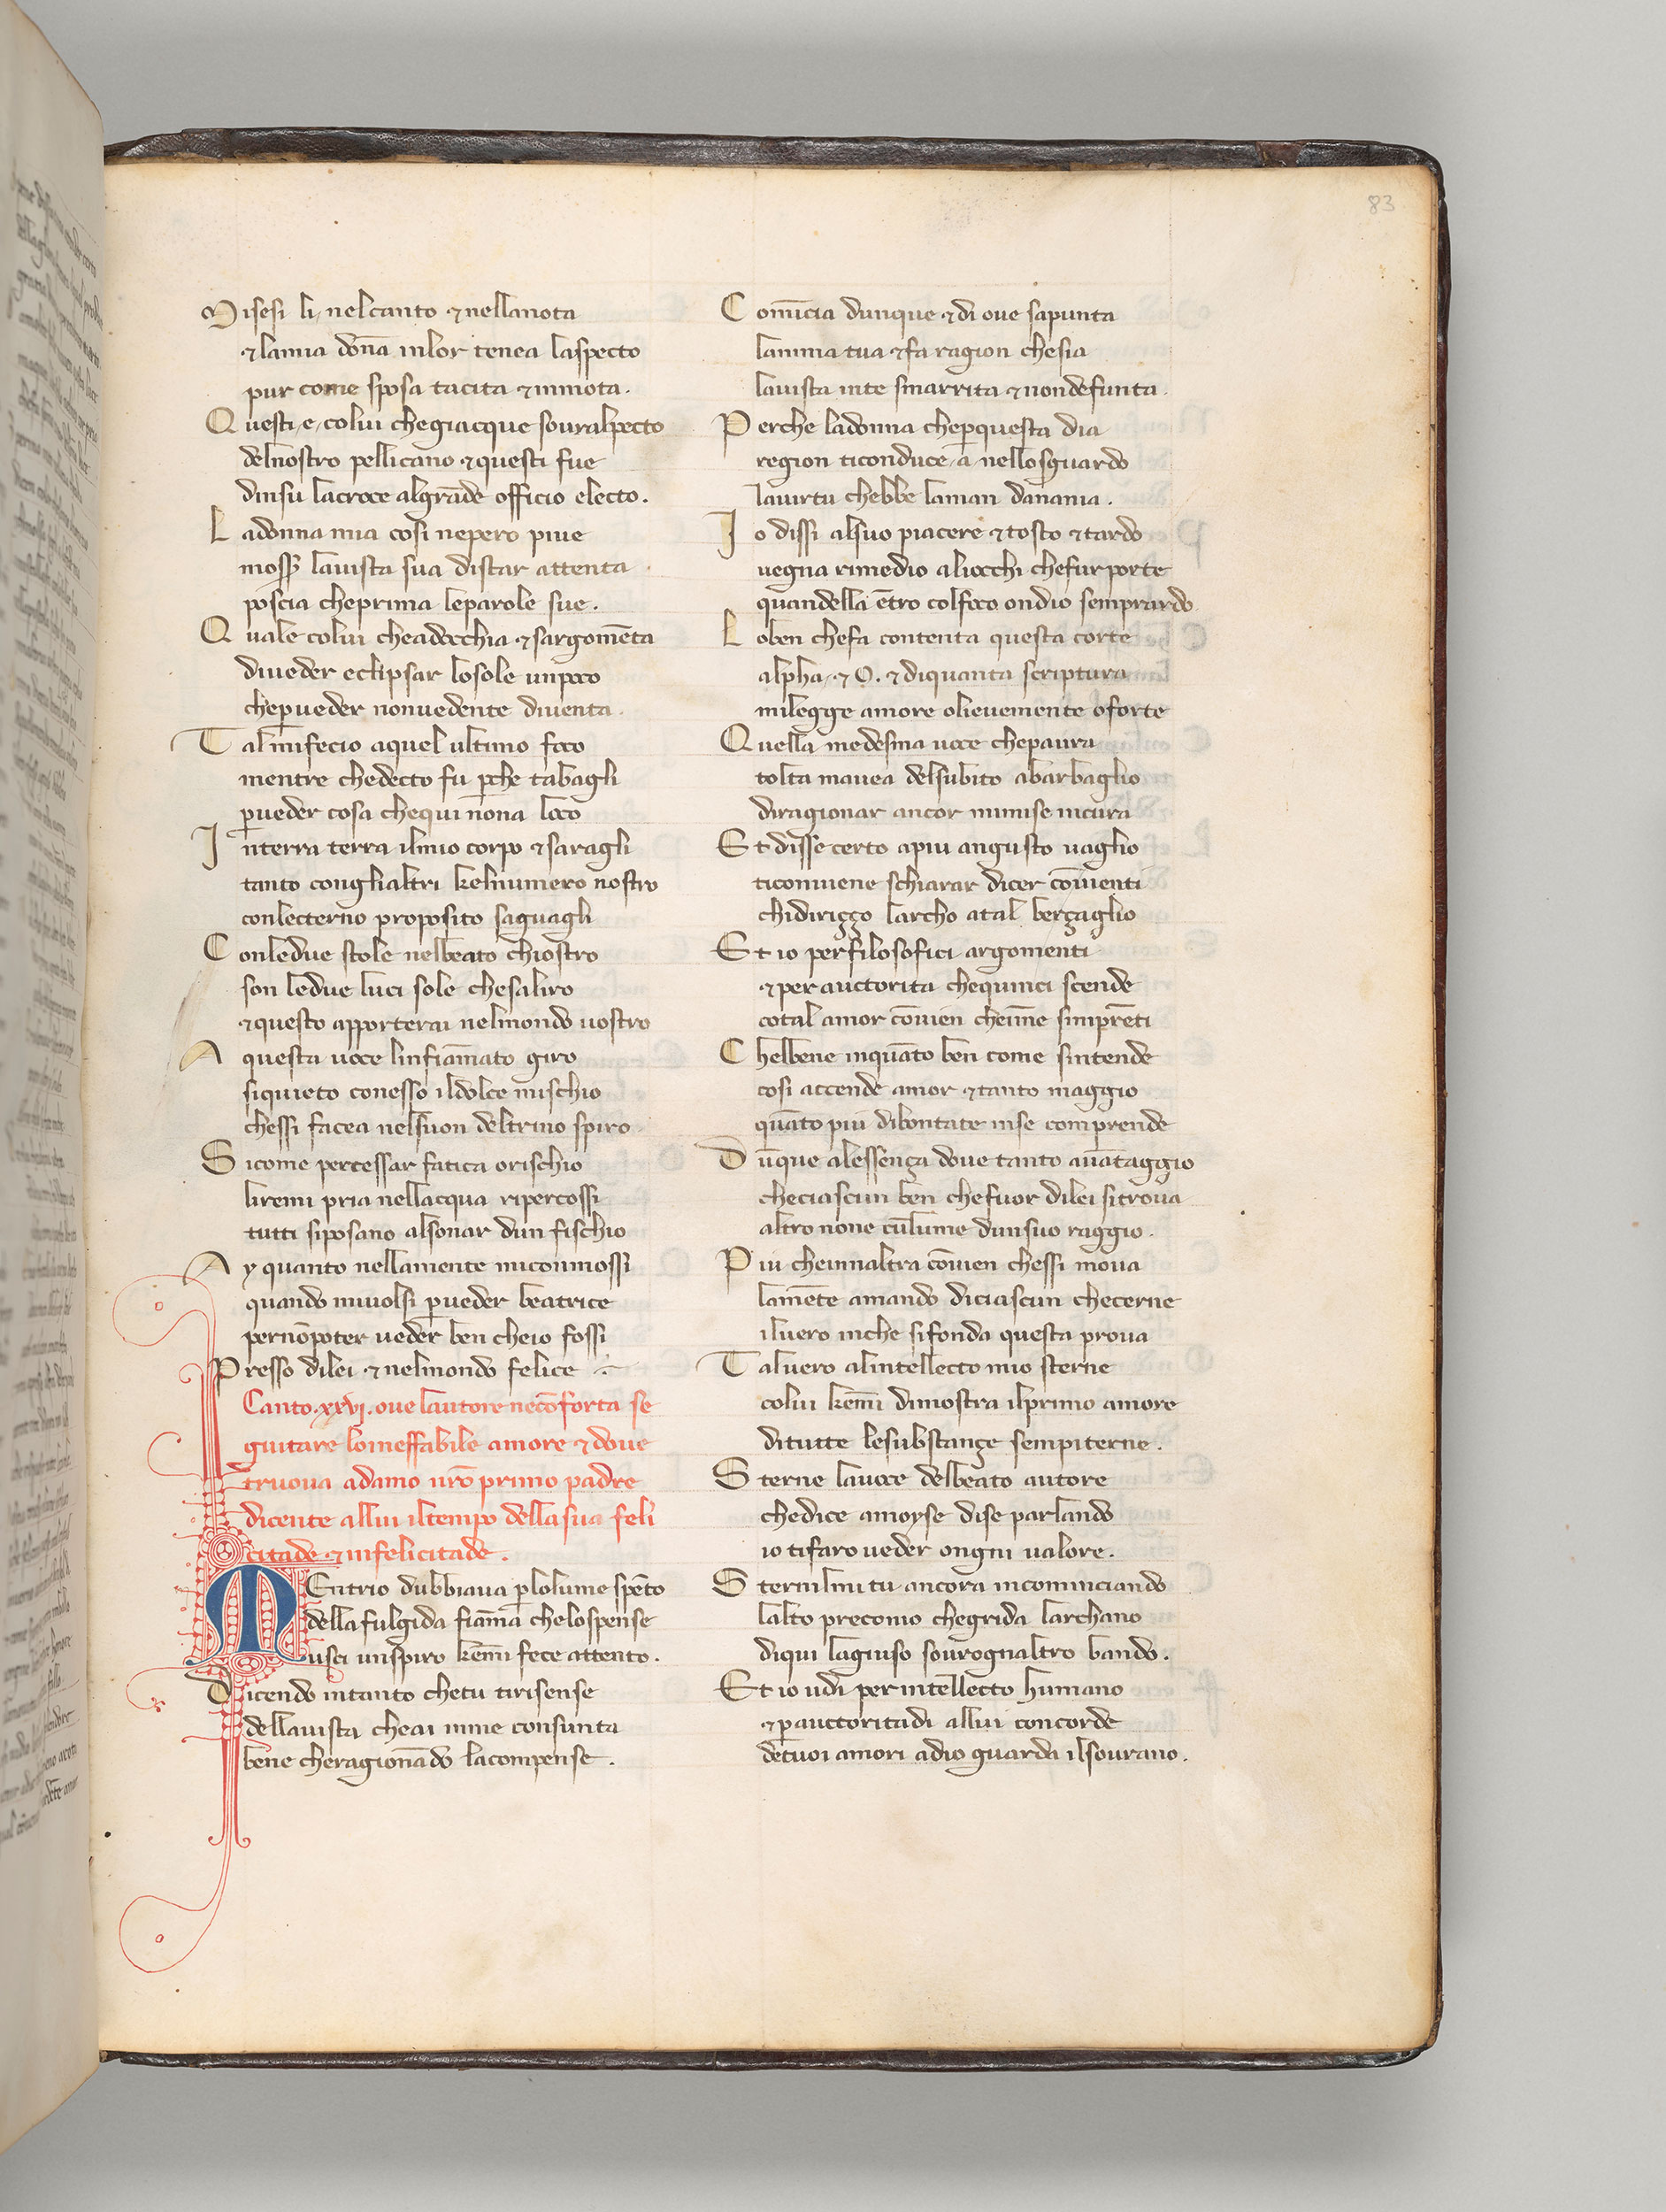 83
Misesi li, nelcanto ⁊nellanota
⁊lamia dōna inlor tenea laspecto
pur come sposa tacita ⁊inmota.
Questi, e, colui chegiacque souralpecto
delnostro pellicano ⁊questi fue
dinsu lacroce algrāde officio electo.
Ladonna mia cosi nepero piue
lauista sua distar attenta
poscia cheprima leparole sue.
Quale colui cheadocchia ⁊sargomēta
diueder eclipsar losole unpoco
cheꝑueder nonuedente diuenta.
Talmifecio aquel ultimo foco
mentre chedecto fu ꝑche tabagli
ꝑueder cosa chequi nōna loco
Interra terra ilmio corpo ⁊saragli
tanto conglialtri kelnumero nostro
conlecterno proposito saguagli
Conledue stole nelbeato chiostro
son ledue luci sole chesaliro
⁊questo apporterai nelmondo uostro
A questa uoce linfiāmato giro
siquieto conesso ildolce mischio
chessi facea nelsuon deltrino spiro
Sicome percessar fatica orischio
liremi pria nellacqua ripercossi
tutti siposano alsonar dun fischio
Ay quanto nellamente micommossi
quando miuolsi ꝑueder beatrice
pernōpoter ueder ben cheio fossi
Presso dilei ⁊nelmondo felice
Canto.xxvj.oue lautore necōforta se
guitare loineffabile amore ⁊doue
truoua adamo nrō primo padre
dicente allui iltempo dellasua feli
citade ⁊infelicitade.
MEntrio dubbiaua ꝑlolume spēto
dellafulgida fiāma chelospense
usci unspiro kēmi fece attento.
Dicendo intanto chetu tirisense
dellauista cheai inme consunta
bene cheragionādo lacompense.
Comīcia dunque ⁊di oue sapunta
lanima tua ⁊fa ragion chesia
lauista inte smarrita ⁊nondefunta.
Perche ladonna cheꝑquesta dia
region ticonduce, a, nellosguardo
lauirtu chebbe laman danania.
Io dissi alsuo piacere ⁊tosto ⁊tardo
uegna rimedio aliocchi chefurporte
quandella ētro colfoco ondio semprardo
Loben chefa contenta questa corte
alpha, ⁊ O. ⁊ diquanta scriptura
milegge amore olieuemente oforte
Quella medesma uoce chepaura
tolta mauea delsubito abarbaglio
diragionar ancor mimise incura
Et disse certo apiu angusto uaglio
ticonuiene schiarar dicer cōuienti
chidiriçço larcho atal berçaglio
Et io perfilosofici argomenti
⁊per auctorita chequinci scende
cotal amor cōuien cheinme simprēti
Chelbene inquāto ben come sintende
cosi accende amor ⁊tanto maggio
quāto piu dibontate inse comprende
Dūque alessença doue tanto auātaggio
checiascun ben chefuor dilei sitroua
altro none cūlume dunsuo raggio.
Piu cheinnaltra cōuien chessi moua
lamēte amando diciascun checerne
iluero inche sifonda questa proua
Taluero alintellecto mio sterne
colui kēmi dimostra ilprimo amore
ditutte lesubstançe sempiterne.
Sterne lauoce delbeato autore
chedice amoyse dise parlando
io tifaro ueder ongni ualore.
Sternilmi tu ancora incominciando
lalto preconio chegrida larchano
diqui lagiuso sourognaltro bando.
Et io udi perintellecto humano
⁊ꝑauctoritadi allui concorde
detuoi amori adio guarda ilsourano.